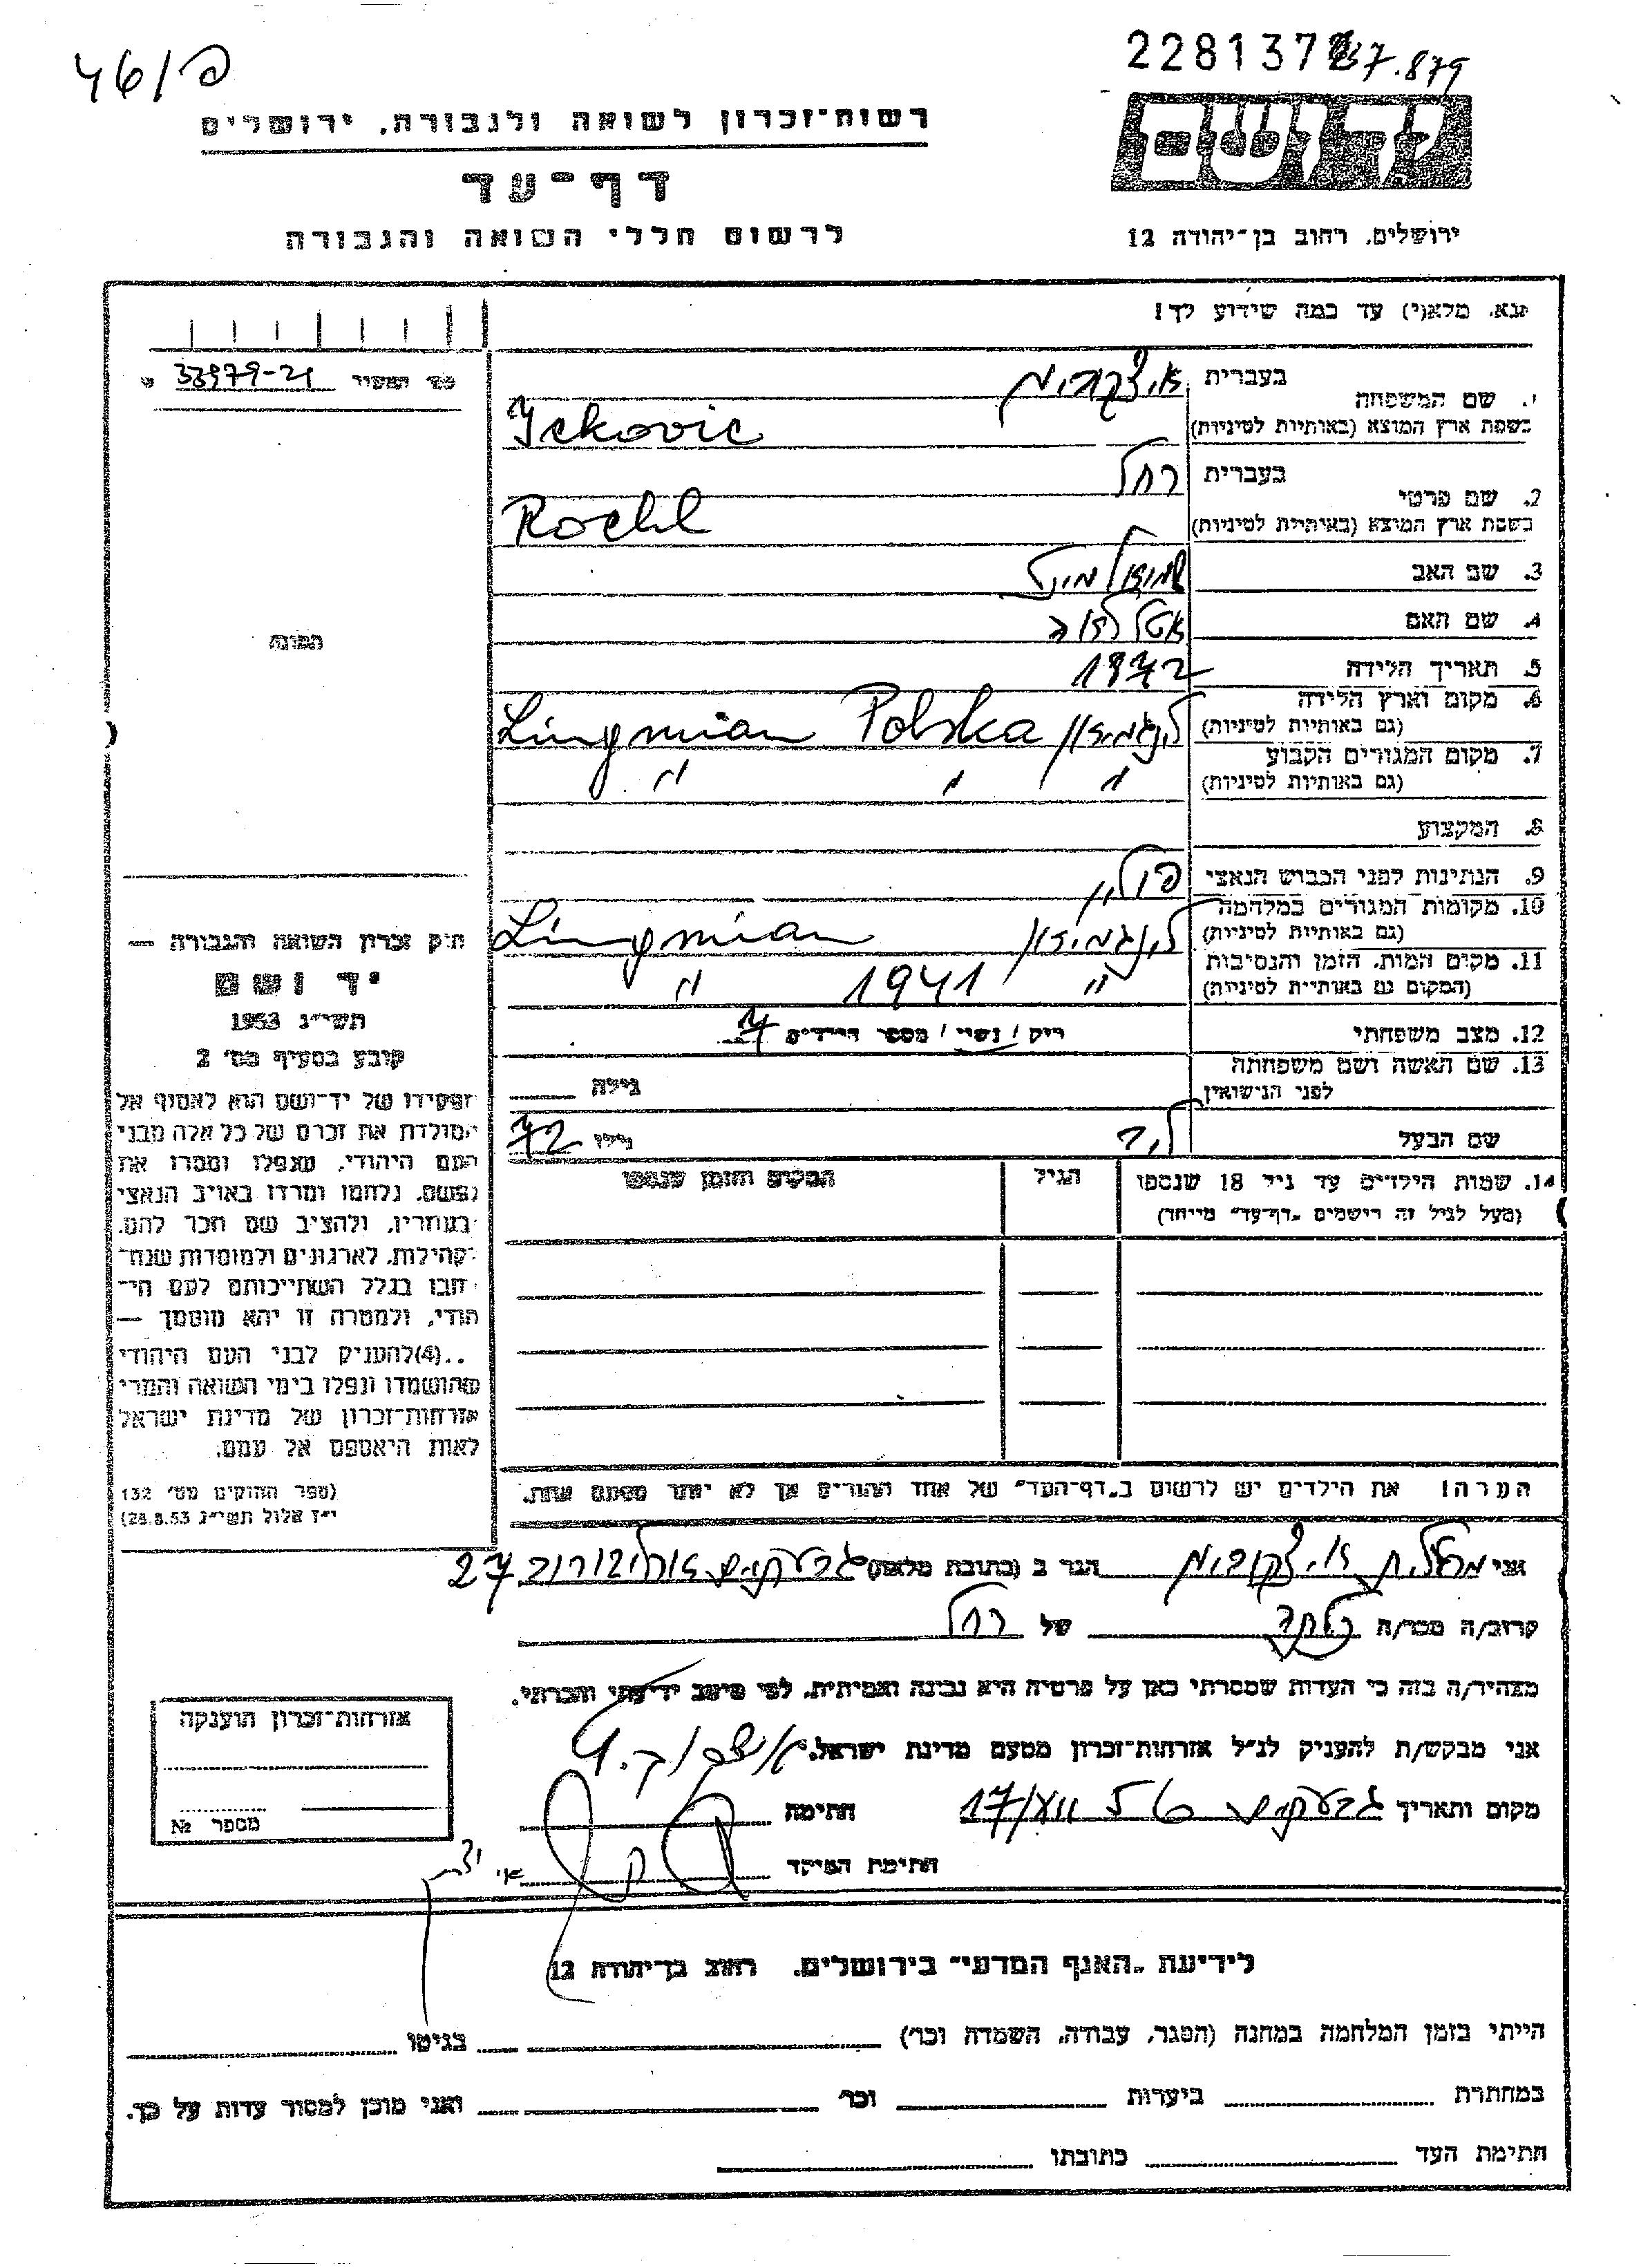 2281372
237.879
46/פ
רשות־זכרון לשואה ולגבורה, ירושלים
דף־עד
לרשום חללי השואה והגבורה
ירושלים, רחוב בן־יהודה 12
נא, מלא(י) עד כמה שידוע לך!
33979-21
1. שם המשפחה
בעברית
בשפת ארץ המוצא (באותיות לטיניות)
Ickovic
2. שם פרטי
בעברית רחל
בשפת ארץ המוצא (באותיות לטיניות)
Rochl
3. שם האב שמואל
4. שם האם
5. תאריך הלידה
6. מקום וארץ הלידה
(גם באותיות לטיניות)
Lingmian Polska
7. מקום המגורים הקבוע
(גם באותיות לטיניות)
" " "
8. המקצוע
9. הנתינות לפני הכבוש הנאצי פולין
10. מקומות המגורים במלחמה
(גם באותיות לטיניות)
Lingmian
11. מקום המות, הזמן והנסיבות
(המקום גם באותיות לטיניות)
" 1941 "
12. מצב משפחתי
רוק / נשוי / מספר הילדים
13. שם האשה ושם משפחתה
לפני הנישואין
גילה
שם הבעל
גילו 72
14. שמות הילדים עד גיל 18 שנספו
(מעל לגיל זה רושמים "דף־עד" מיוחד)
הגיל
המקום והזמן שנספו
הערה! את הילדים יש לרשום ב"דף־העד" של אחד ההורים אך לא יותר מפעם אחת.
תמונה
חוק זכרון השואה והגבורה —
יד ושם
תשי"ג 1953
קובע בסעיף מס' 2
תפקידו של יד־ושם הוא לאסוף אל
המולדת את זכרם של כל אלה מבני
העם היהודי, שנפלו ומסרו את
נפשם, נלחמו ומרדו באויב הנאצי
בעוזריו, ולהציב שם וזכר להם,
לקהילות, לארגונים ולמוסדות שנח־
רבו בגלל השתייכותם לעם הי־
הודי, ולמטרה זו יהא מוסמך —
..(4)להעניק לבני העם היהודי
שהושמדו ונפלו בימי השואה והמרי
אזרחות־זכרון של מדינת ישראל
לאות היאספם אל עמם.
(ספר החוקים מס' 132
י"ז אלול תשי"ג 28.8.53)
אני הגר ב (כתובת מלאה) 27
קרוב/ה מכר/ה של רחל
מצהיר/ה בזה כי העדות שמסרתי כאן על פרטיה היא נכונה ואמיתית, לפי מיטב ידיעתי והכרתי.
אני מבקש/ת להעניק לנ"ל אזרחות־זכרון מטעם מדינת ישראל.
מקום ותאריך
חתימה
חתימת הפוקד
אזרחות־זכרון הוענקה
מספר №
לידיעת "האגף המדעי" בירושלים, רחוב בן־יהודה 12
הייתי בזמן המלחמה במחנה (הסגר, עבודה, השמדה וכו') בגיטו
במחתרת ביערות וכו' ואני מוכן למסור עדות על כך.
חתימת העד כתובתו